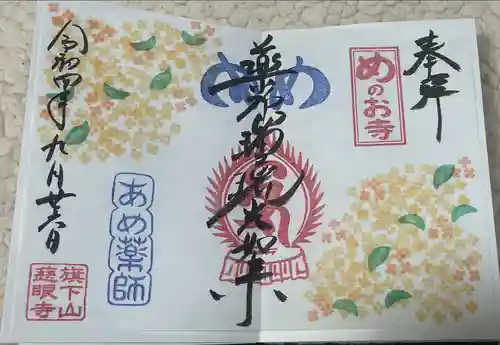 奉拝
めのお寺
め め
薬師瑠璃光如来
あめ薬師
令和四年九月廿六日
旗下山
慈眼寺